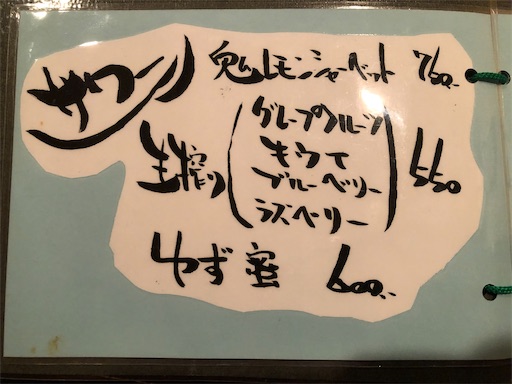 サワー
鬼レモンシャーベット 760.-
生搾り
グレープフルーツ
キウイ
ブルーベリー
ラズベリー
550
ゆず蜜 600.-